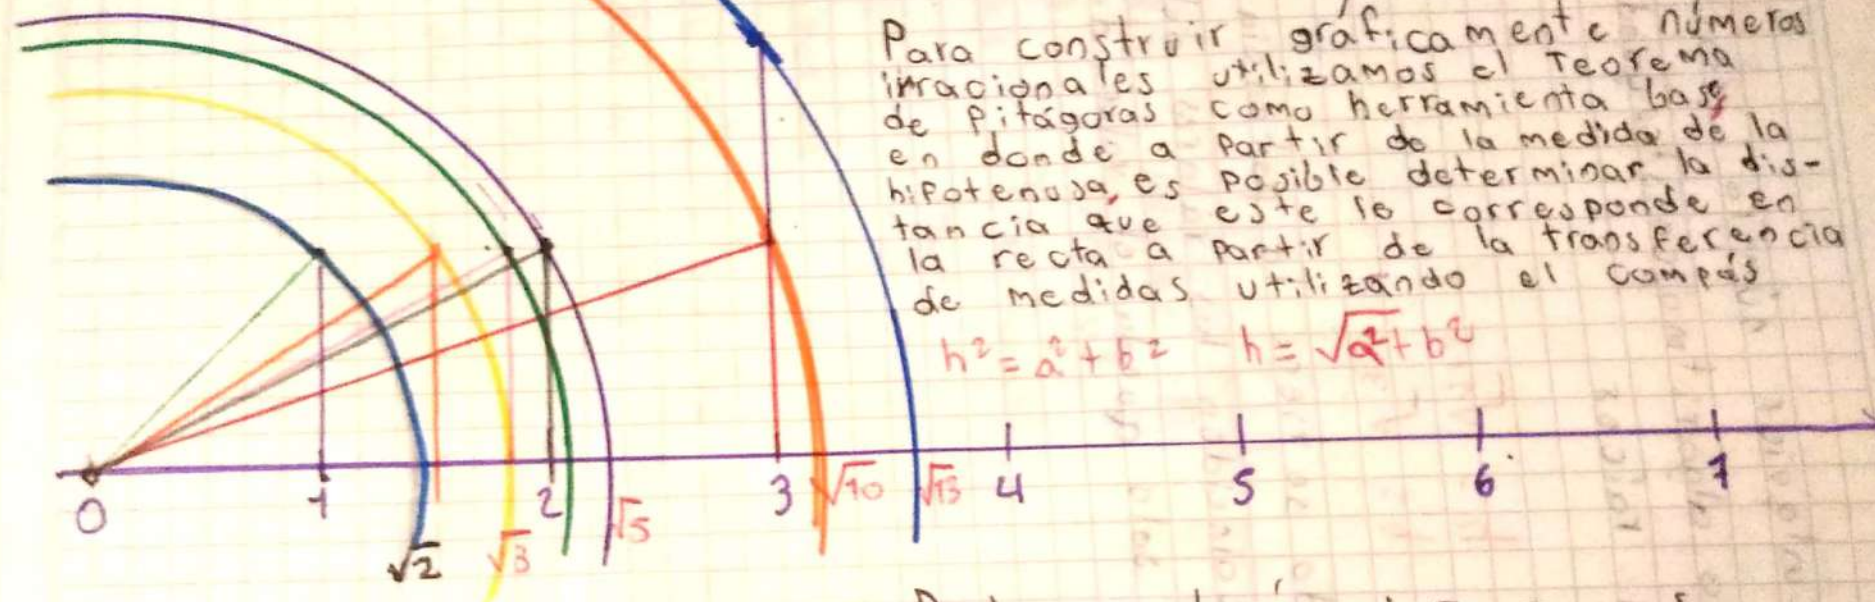 Para construir gráficamente números
irracionales utilizamos el Teorema
de Pitágoras como herramienta base,
en donde a partir de la medida de la
hipotenusa, es posible determinar la dis-
tancia que este le corresponde en
la recta a partir de la transferencia
de medidas utilizando el compás
h² = a² + b² h = √a² + b²
0 1 2 3 4 5 6 7
√2 √3 √5 √10 √13